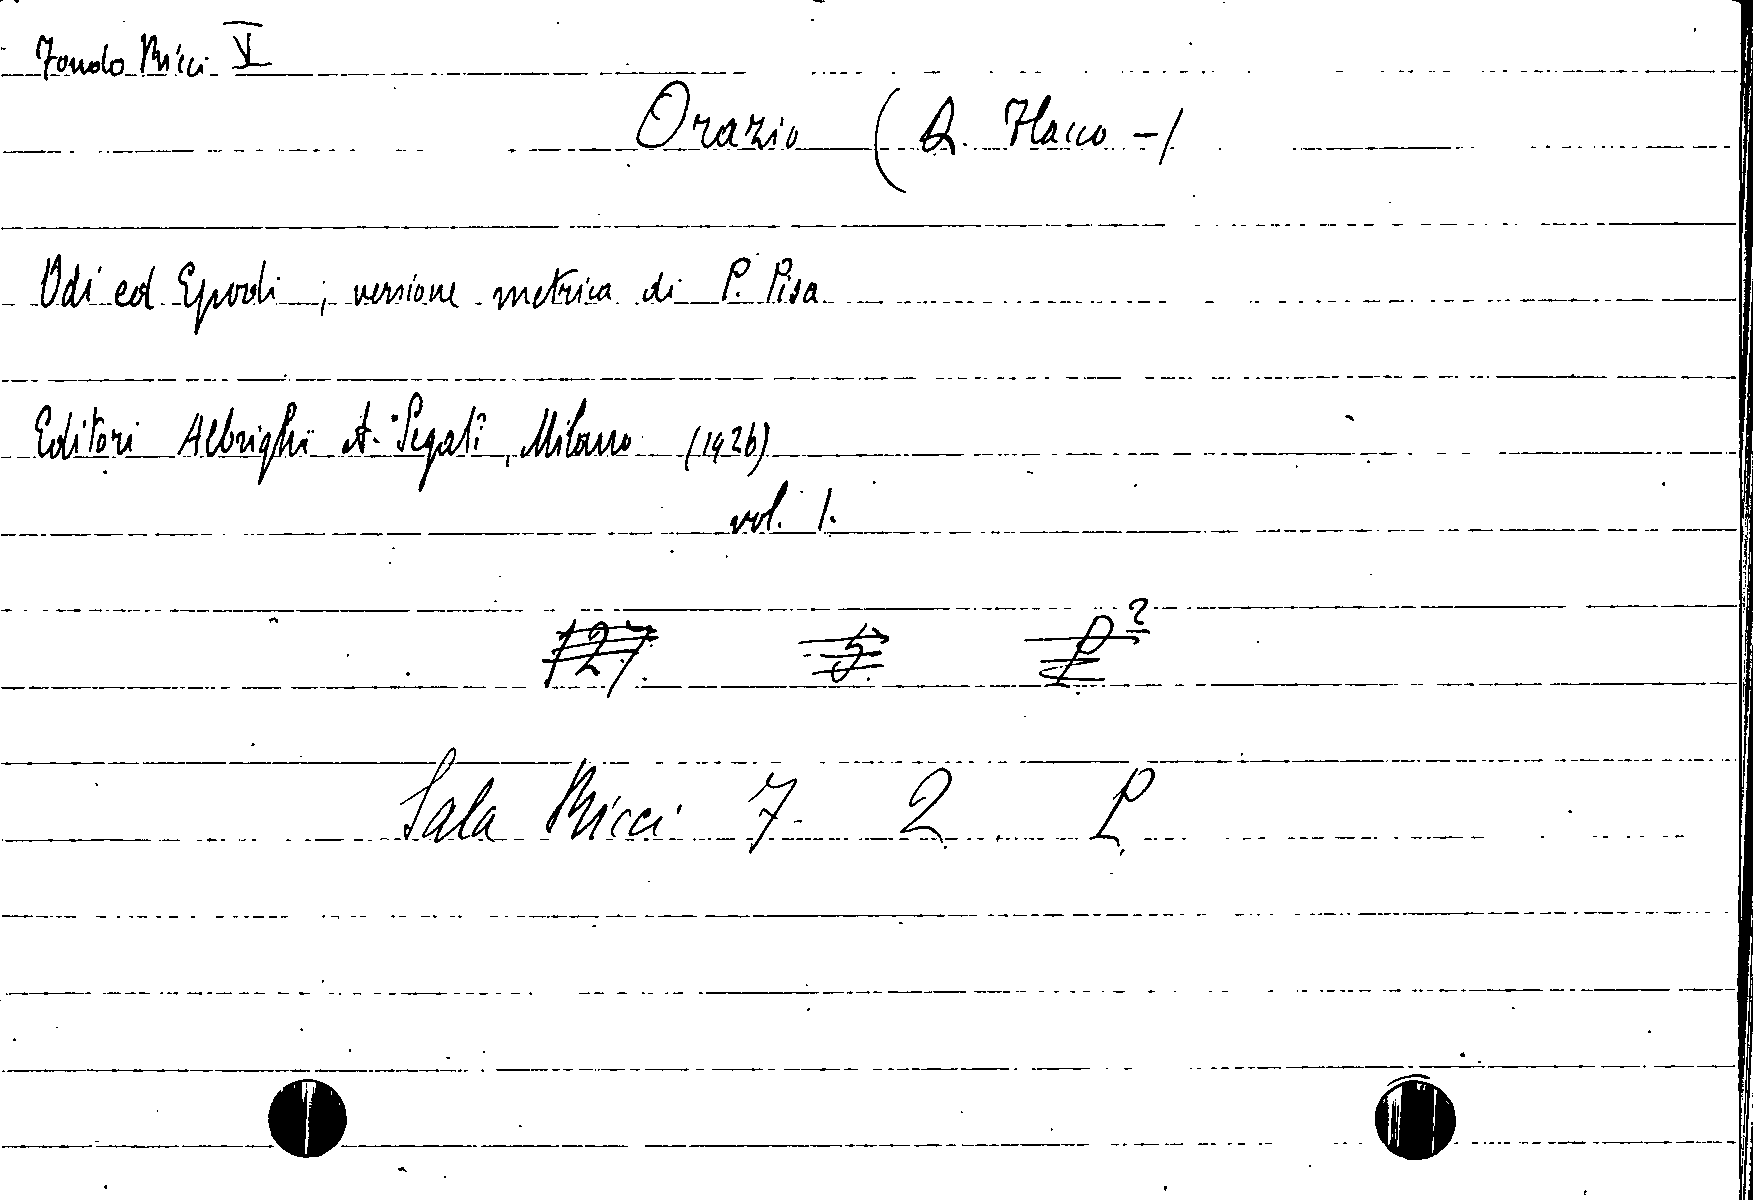 Fondo Ricci V
Orazio (Q. Flacco -)
Odi ed Epodi ; versione metrica di P. Pisa
Editori Albrighi A. Segati, Milano (1926)
vol. 1.
127. 5. P²
Sala Ricci 7. 2. P.